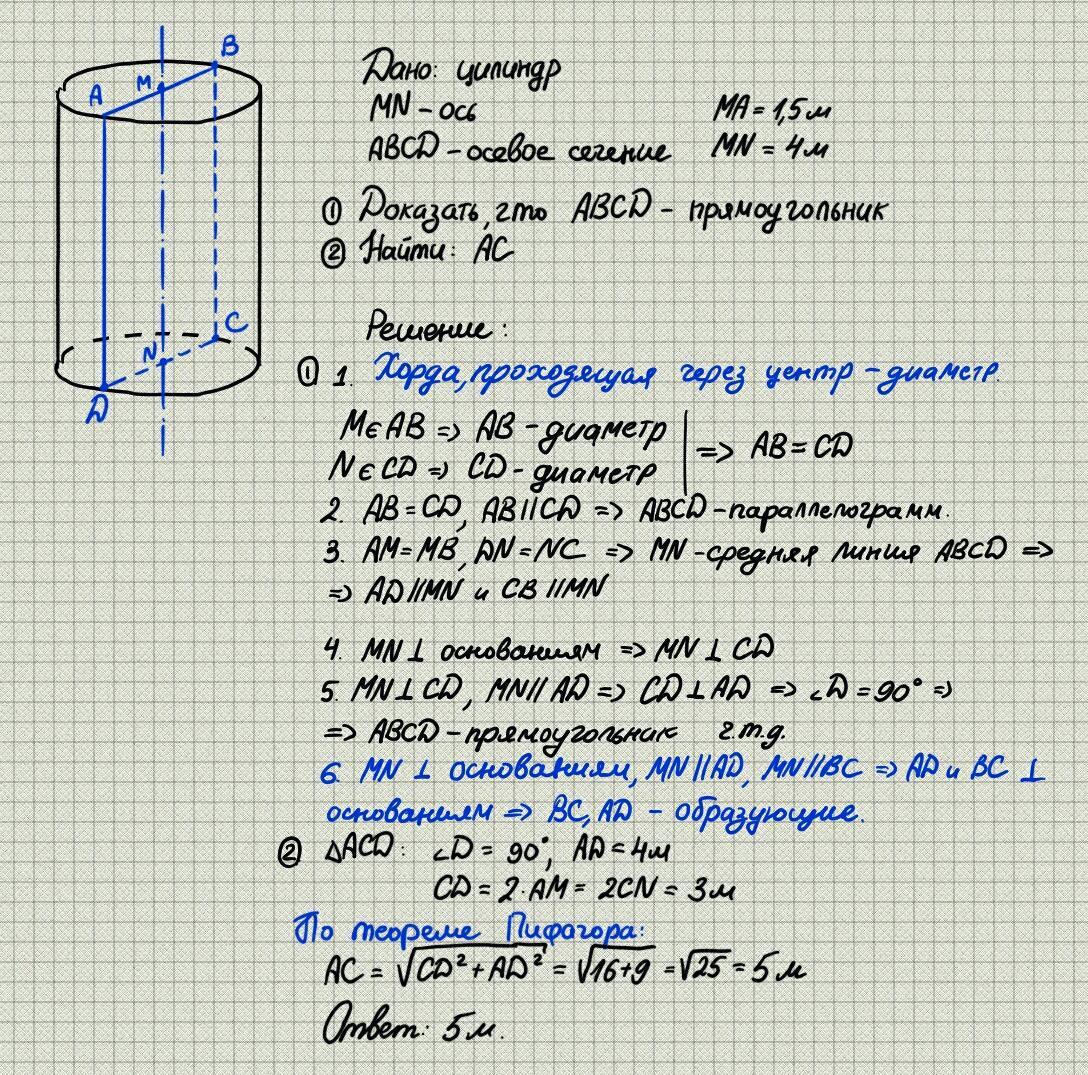 B
M
A
C
N
D
Дано: цилиндр
MN - ось MA = 1,5 м
ABCD - осевое сечение MN = 4 м
① Доказать, что ABCD - прямоугольник
② Найти: AC
Решение:
① 1. Хорда, проходящая через центр - диаметр.
M ∈ AB => AB - диаметр
N ∈ CD => CD - диаметр | => AB = CD
2. AB = CD, AB || CD => ABCD - параллелограмм.
3. AM = MB, DN = NC => MN - средняя линия ABCD =>
=> AD || MN и CB || MN
4. MN ⊥ основаниям => MN ⊥ CD
5. MN ⊥ CD, MN || AD => CD ⊥ AD => ∠D = 90° =>
=> ABCD - прямоугольник ч.т.д.
6. MN ⊥ основаниям, MN || AD, MN || BC => AD и BC ⊥
основаниям => BC, AD - образующие.
② △ACD: ∠D = 90°, AD = 4 м
CD = 2·AM = 2CN = 3 м
По теореме Пифагора:
AC = √(CD² + AD²) = √(16+9) = √25 = 5 м
Ответ: 5 м.